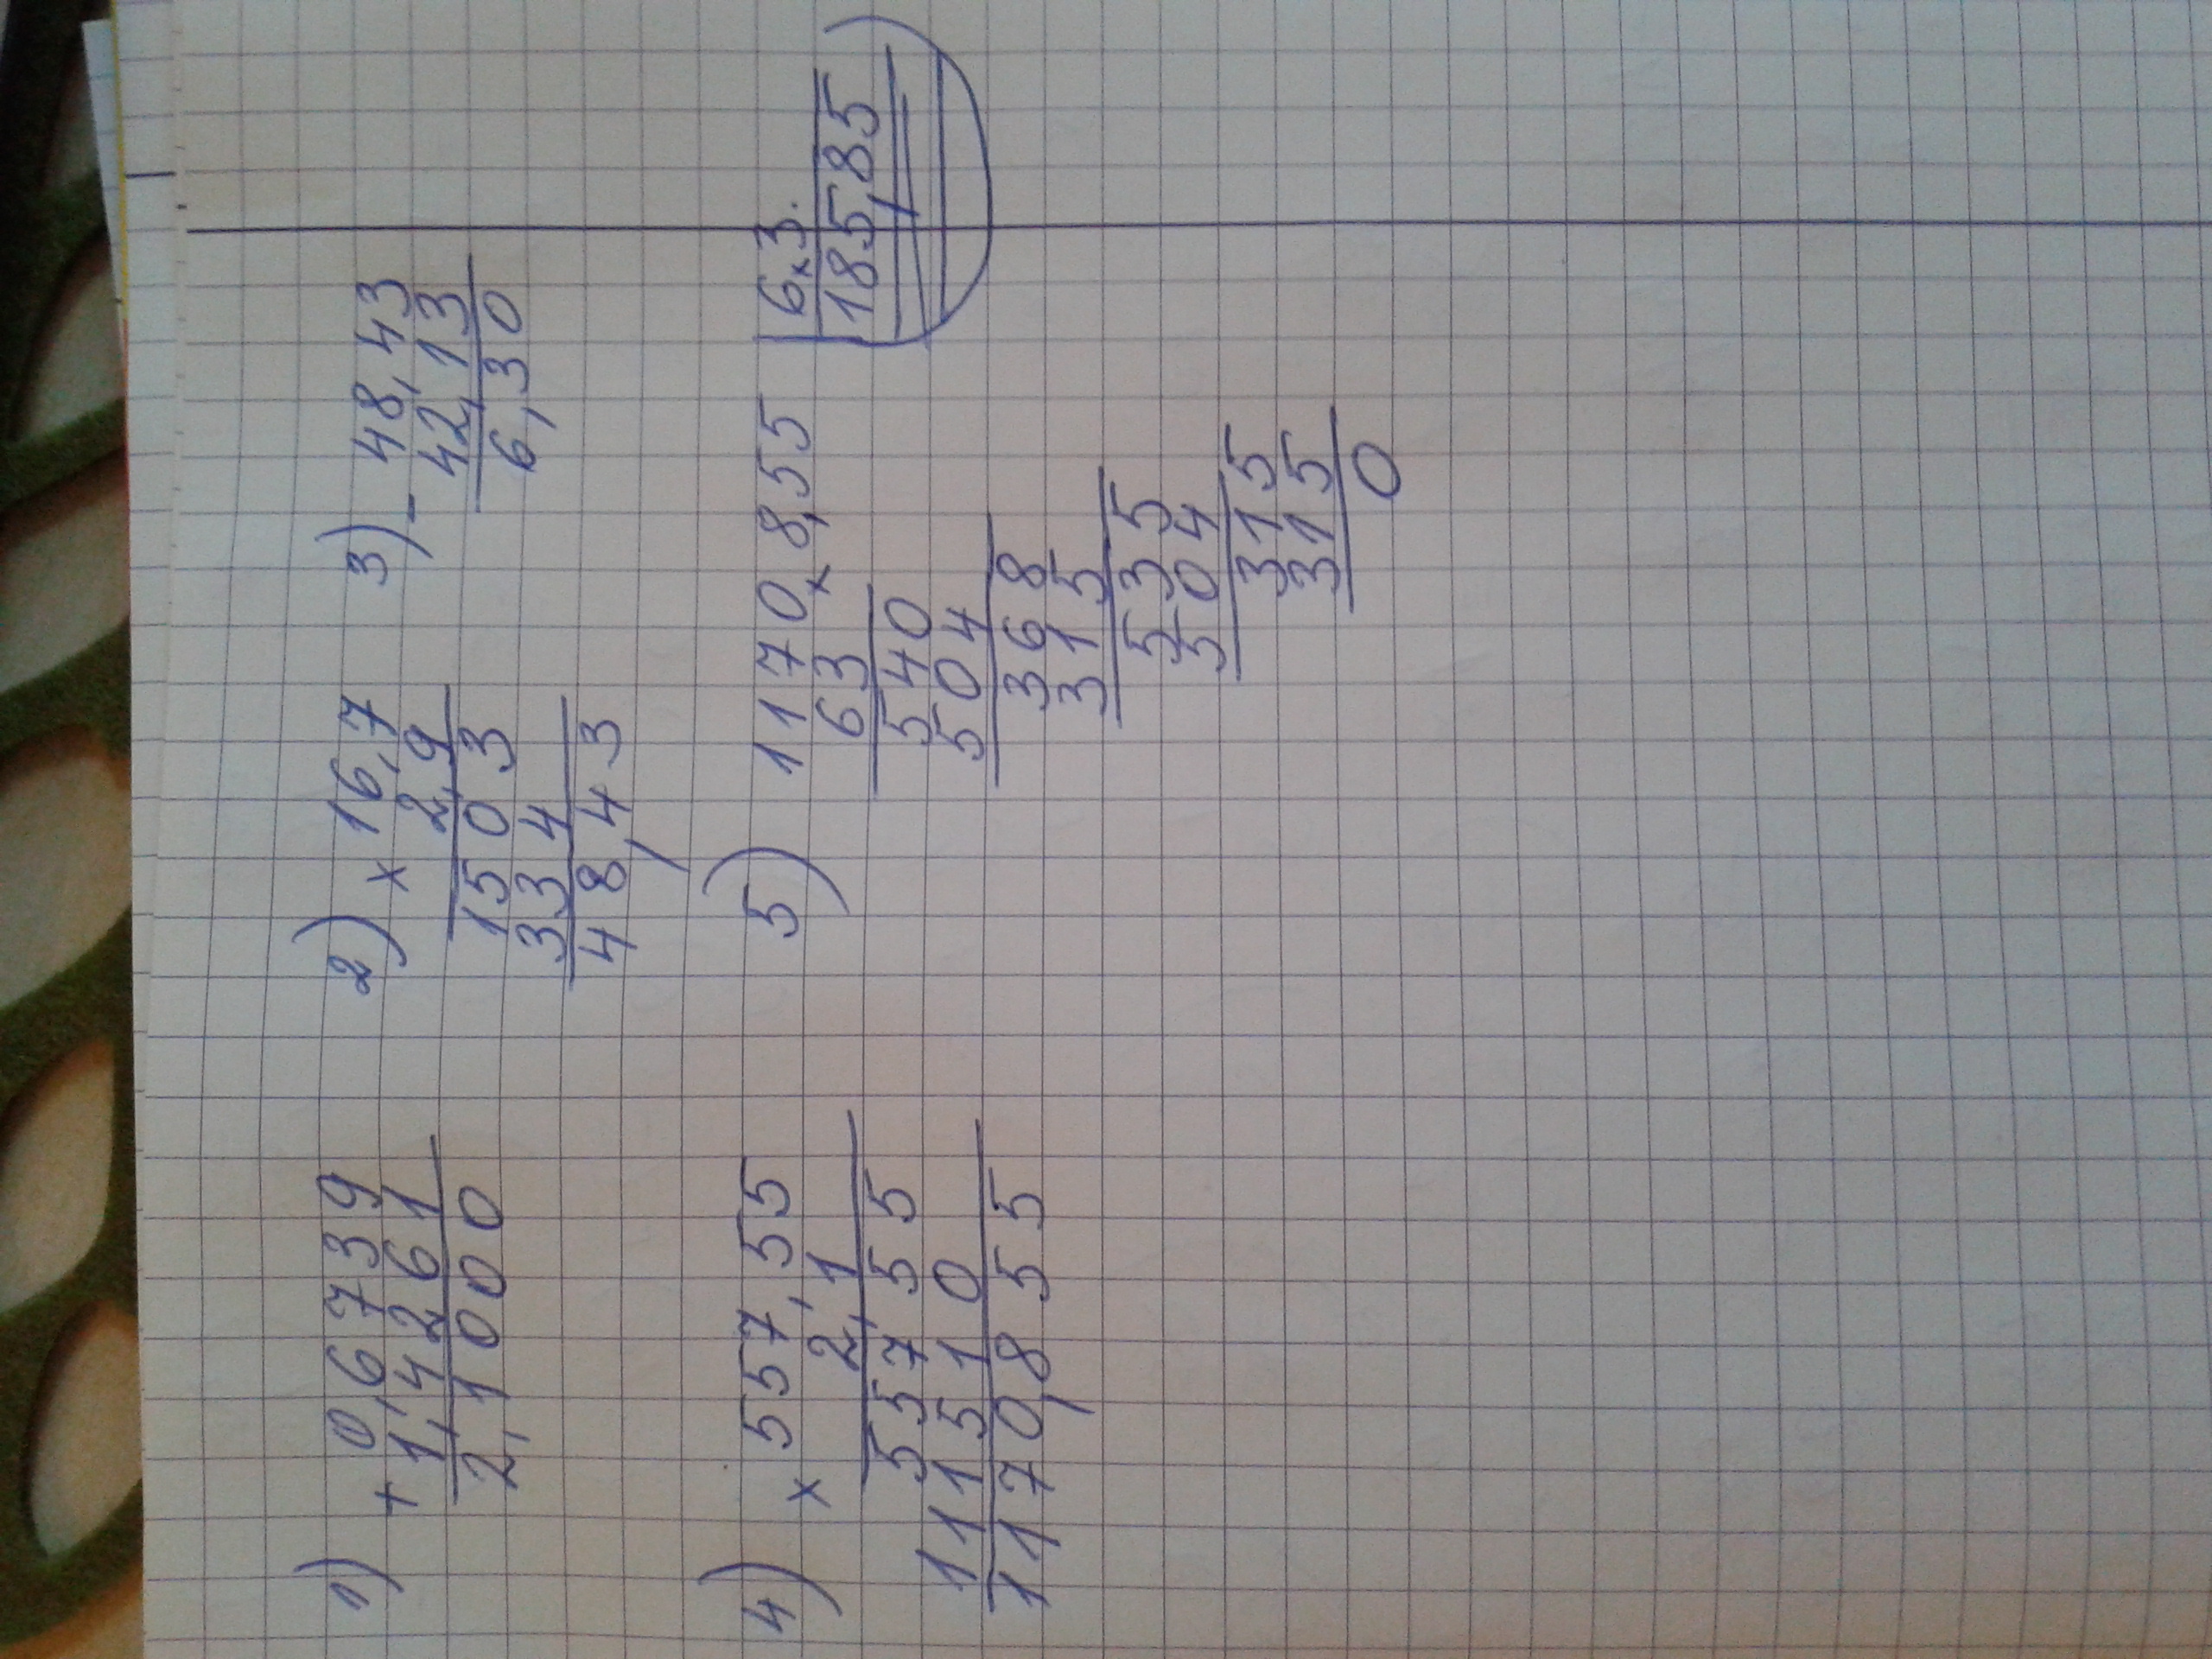 1) + 0,6739
1,4261
2,1000
2) x 16,7
2,9
1503
334
48,43
3) - 48,43
42,13
6,30
4) x 557,55
2,1
55755
111510
1170,855
5) 1170,8,55 | 6,3.
63
185,85
540
504
368
315
535
504
315
315
0